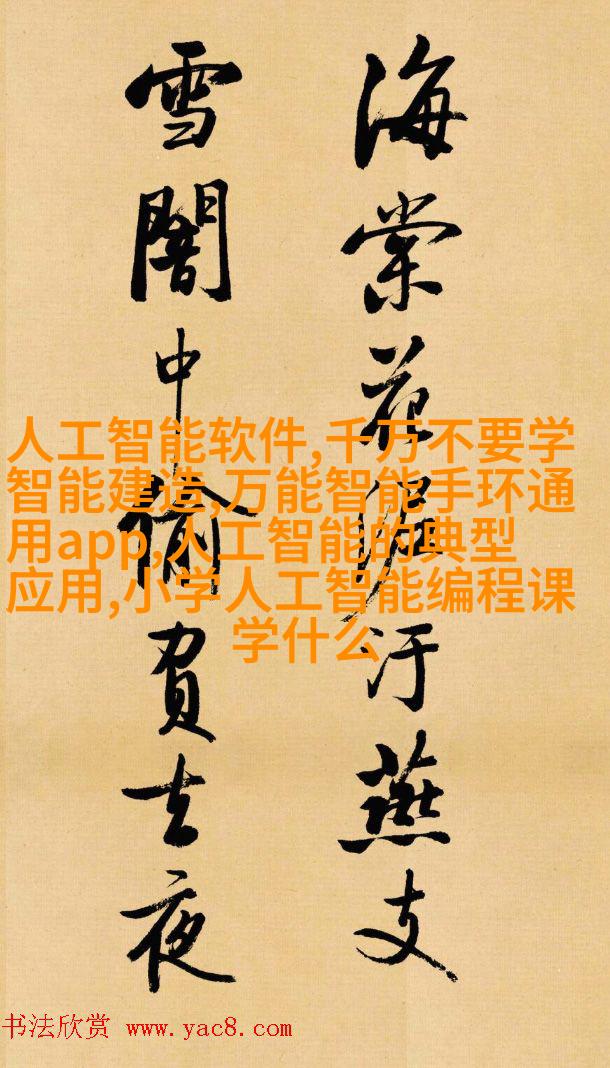 海棠花泥汙燕支
雪闇中偷負去夜
人工智能软件,千万不要学
智能建造,万能智能手环通
用app,人工智能的典型
应用,小学人工智能编程课
学什么
书法欣赏 www.yac8.com